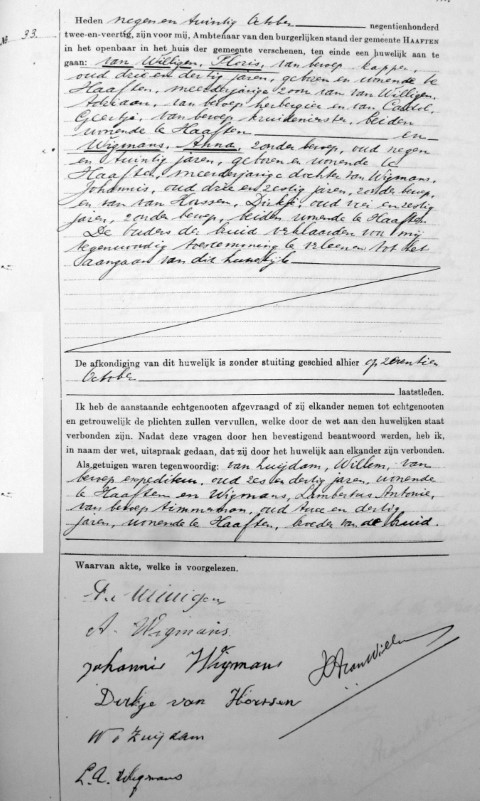 No 33.
Heden negen en twintig October negentienhonderd
twee-en-veertig, zijn voor mij, Ambtenaar van den burgerlijken stand der gemeente HAAFTEN
in het openbaar in het huis der gemeente verschenen, ten einde een huwelijk aan te
gaan: van Willigen, Floris, van beroep kapper,
oud drie en dertig jaren, geboren en wonende te
Haaften, meerderjarige zoon van van Willigen,
Adriaan, van beroep herbergier en van
Geertje, van beroep kruidenierster, beiden
wonende te Haaften en
Wigmans, Anna, zonder beroep, oud negen
en twintig jaren, geboren en wonende te
Haaften, meerderjarige dochter van Wigmans,
Johannis, oud drie en zestig jaren, zonder beroep,
en van van Hossen, Dirkje, oud en zestig
jaren, zonder beroep, beiden wonende te Haaften
De ouders der bruid verklaarden voor mij
tegenwoordig toestemming te verleenen tot het
aangaan van dit huwelijk
De afkondiging van dit huwelijk is zonder stuiting geschied alhier op zeventien
October
laatstleden.
Ik heb de aanstaande echtgenooten afgevraagd of zij elkander nemen tot echtgenooten
en getrouwelijk de plichten zullen vervullen, welke door de wet aan den huwelijken staat
verbonden zijn. Nadat deze vragen door hen bevestigend beantwoord werden, heb ik,
in naam der wet, uitspraak gedaan, dat zij door het huwelijk aan elkander zijn verbonden.
Als getuigen waren tegenwoordig: van Zuijdam, Willem, van
beroep expediteur, oud zes en dertig jaren, wonende
te Haaften en Wigmans, Lambertus Antonie,
van beroep timmerman, oud twee en dertig
jaren, wonende te Haaften, broeder van de bruid.
Waarvan akte, welke is voorgelezen.
A. Wigmans
Johannis Wigmans
Dirkje van Hossen
W v Zuijdam
L.A. Wigmans